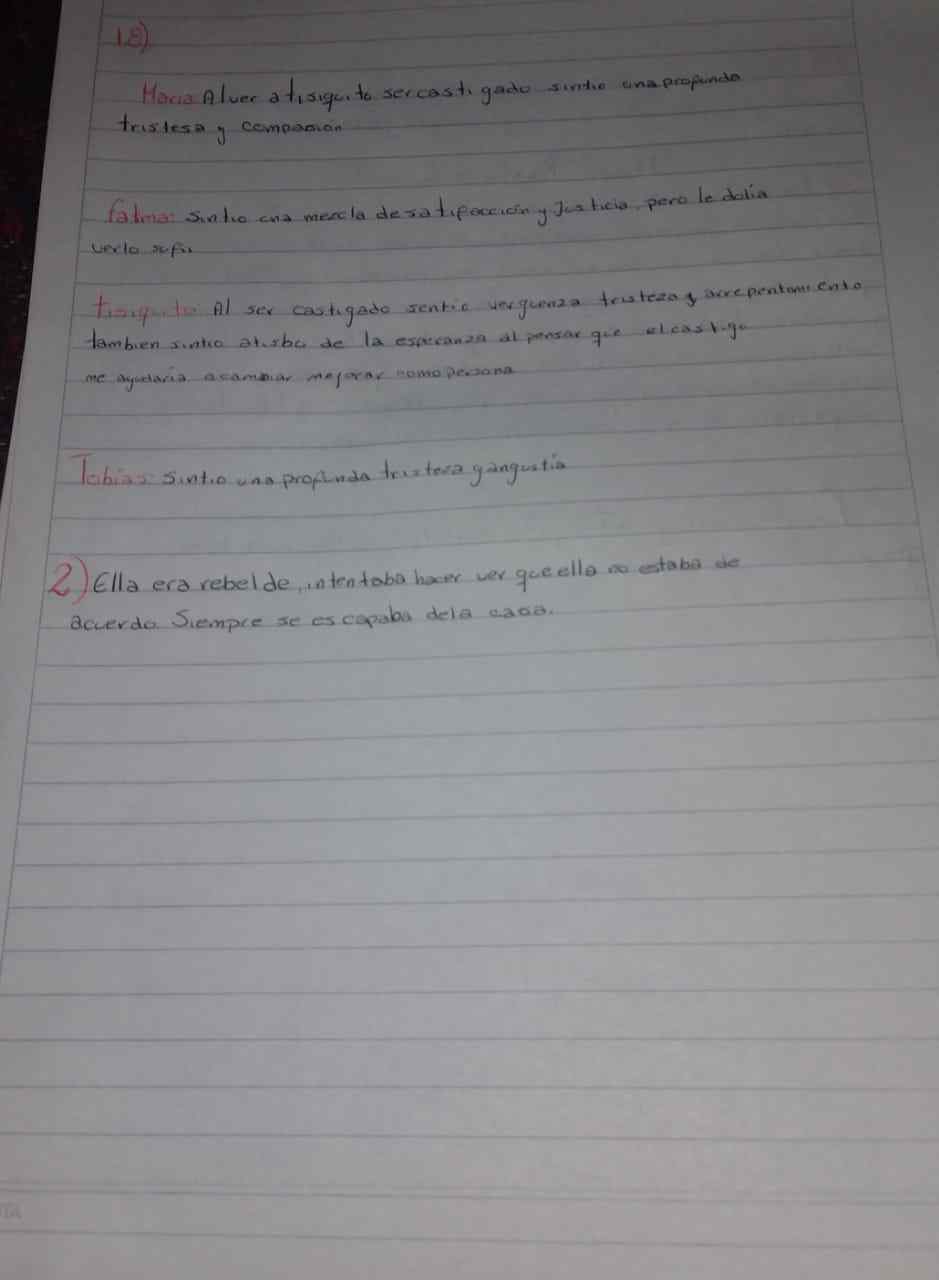 1.8)
Maria: Al ver a tisiquito ser castigado sintio una profunda
tristesa y compasión
fatma: Sintio una mezcla de satifacción y Justicia, pero le dolia
verlo sufir
tisiquito: Al ser castigado sentio verguenza tristeza y arrepentimiento
tambien sintio atisbo de la esperanza al pensar que el castigo
me ayudaría a cambiar mejorar como persona
Tobias: Sintio una profunda tristeza y angustia
2) Ella era rebelde, intentaba hacer ver que ella no estaba de
acuerdo. Siempre se escapaba de la casa.